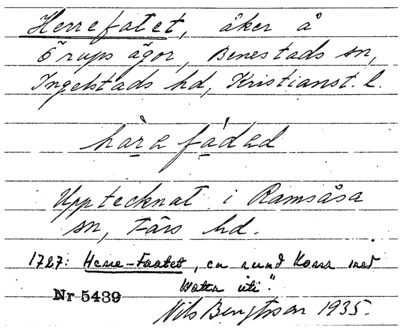 Herrefatet, åker å
Örups ägor, Benestads sn,
Ingelstads hd, Kristianst. l.
hàrafádad
Upptecknat i Ramsåsa
sn, Färs hd.
1727: Herre-Faatet, en rund Kärr med
Watten uti".
Nr 5439
Nils Bengtsson 1935.